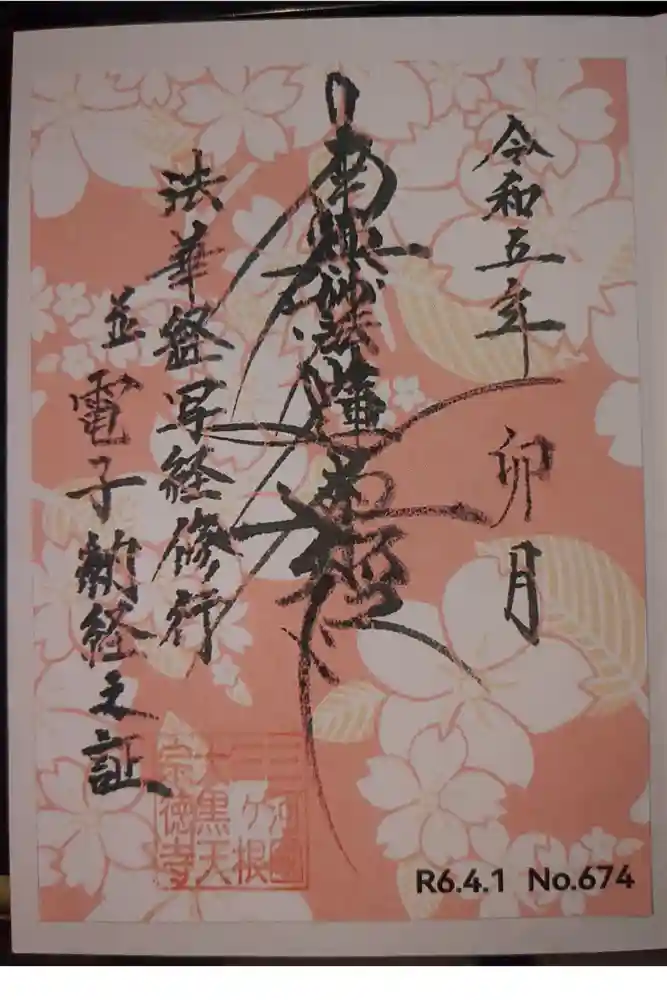 令和五年 卯月
南無妙法蓮華経
法華経写経修行
並 電子納経之証
三河國
三ヶ根
大黒天
宗徳寺
R6.4.1 No.674